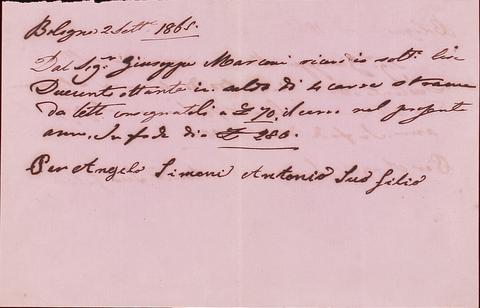 Bologna 2 Sett.e 1865.
Dal Sig.r Giuseppe Marconi ricevo io sott.o lire
Duecentottanta in saldo di 4 carra strame
da letti consegnatoli a £ 70. il carro nel presente
anno. In fede dico £ 280.
Per Angelo Simoni Antonio Suo filio